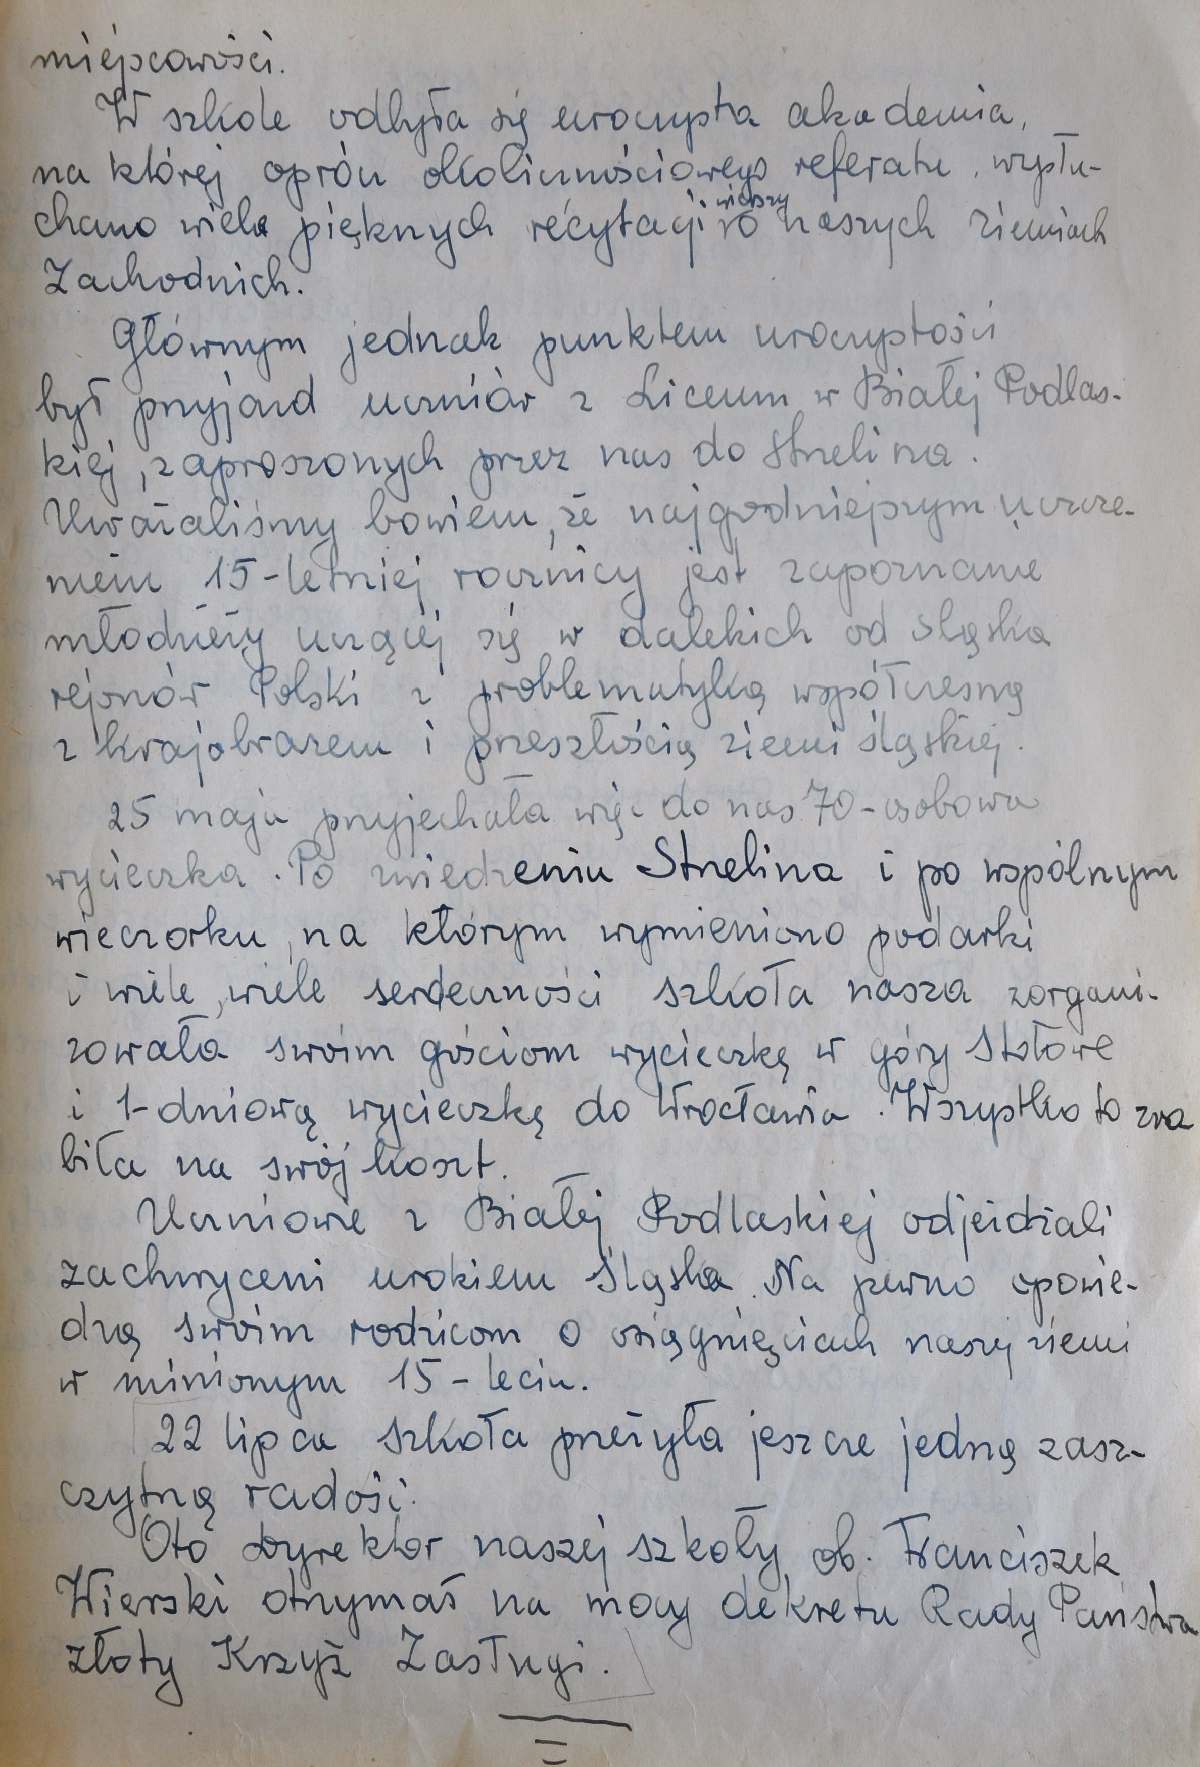 miejscowości.
W szkole odbyła się uroczysta akademia,
na której oprócz okolicznościowego referatu, wysłu-
chano wiele pięknych recytacji wierszy o naszych ziemiach
Zachodnich.
Głównym jednak punktem uroczystości
był przyjazd uczniów z Liceum w Białej Podlas-
kiej, zaproszonych przez nas do Strzelina.
Uważaliśmy bowiem, że najgodniejszym uczcze-
niem 15-letniej rocznicy jest zapoznanie
młodzieży uczącej się w dalekich od Śląska
rejonów Polski z problematyką współczesną
z krajobrazem i przeszłością ziemi śląskiej.
25 maja przyjechała więc do nas 70-osobowa
wycieczka. Po zwiedzeniu Strzelina i po wspólnym
wieczorku, na którym wymieniono podarki
i wiele, wiele serdeczności szkoła nasza zorgani-
zowała swoim gościom wycieczkę w góry Stołowe
i 1-dniową wycieczkę do Wrocławia. Wszystko to zro
biła na swój koszt.
Uczniowie z Białej Podlaskiej odjeżdżali
zachwyceni urokiem Śląska. Na pewno opowie-
dzą swoim rodzicom o osiągnięciach naszej ziemi
w minionym 15-leciu.
22 lipca szkoła przeżyła jeszcze jedną zasz-
czytną radość.
Oto dyrektor naszej szkoły ob. Franciszek
Wierski otrzymał na mocy dekretu Rady Państwa
złoty Krzyż Zasługi.